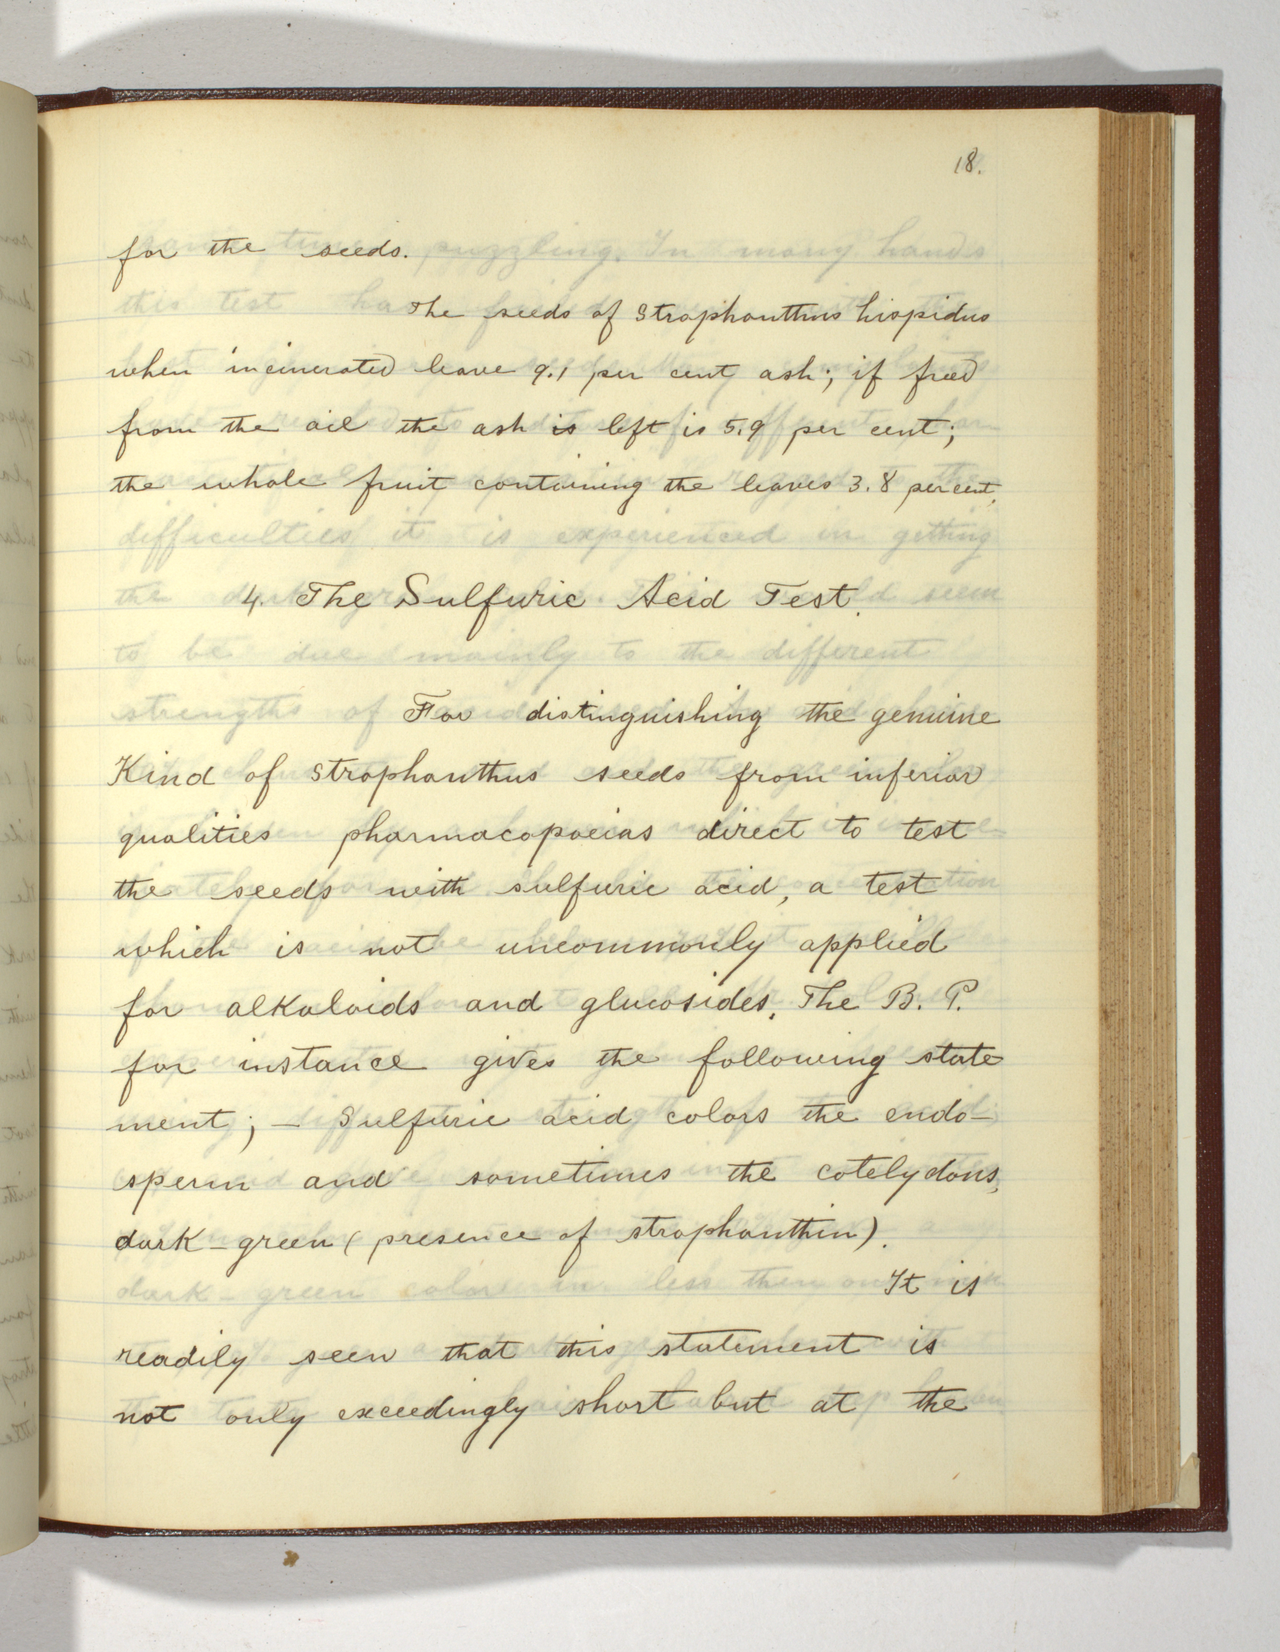 18.
for the seeds.
The seeds of Strophanthus hispidus
when incinerated leave 9.1 per cent ash; if freed
from the oil the ash is left is 5.9 per cent;
the whole fruit containing the leaves 3.8 per cent,
4. The Sulfuric Acid Test.
For distinguishing the genuine
Kind of Strophanthus seeds from inferior
qualities pharmacopoeias direct to test
the seeds with sulfuric acid, a test
which is not uncommonly applied
for alkaloids and glucosides. The B. P.
for instance gives the following state
ment; – Sulfuric acid colors the endo-
sperm and sometimes the cotelydons,
dark-green (presence of strophanthin).
It is
readily seen that this statement is
not only exceedingly short but at the